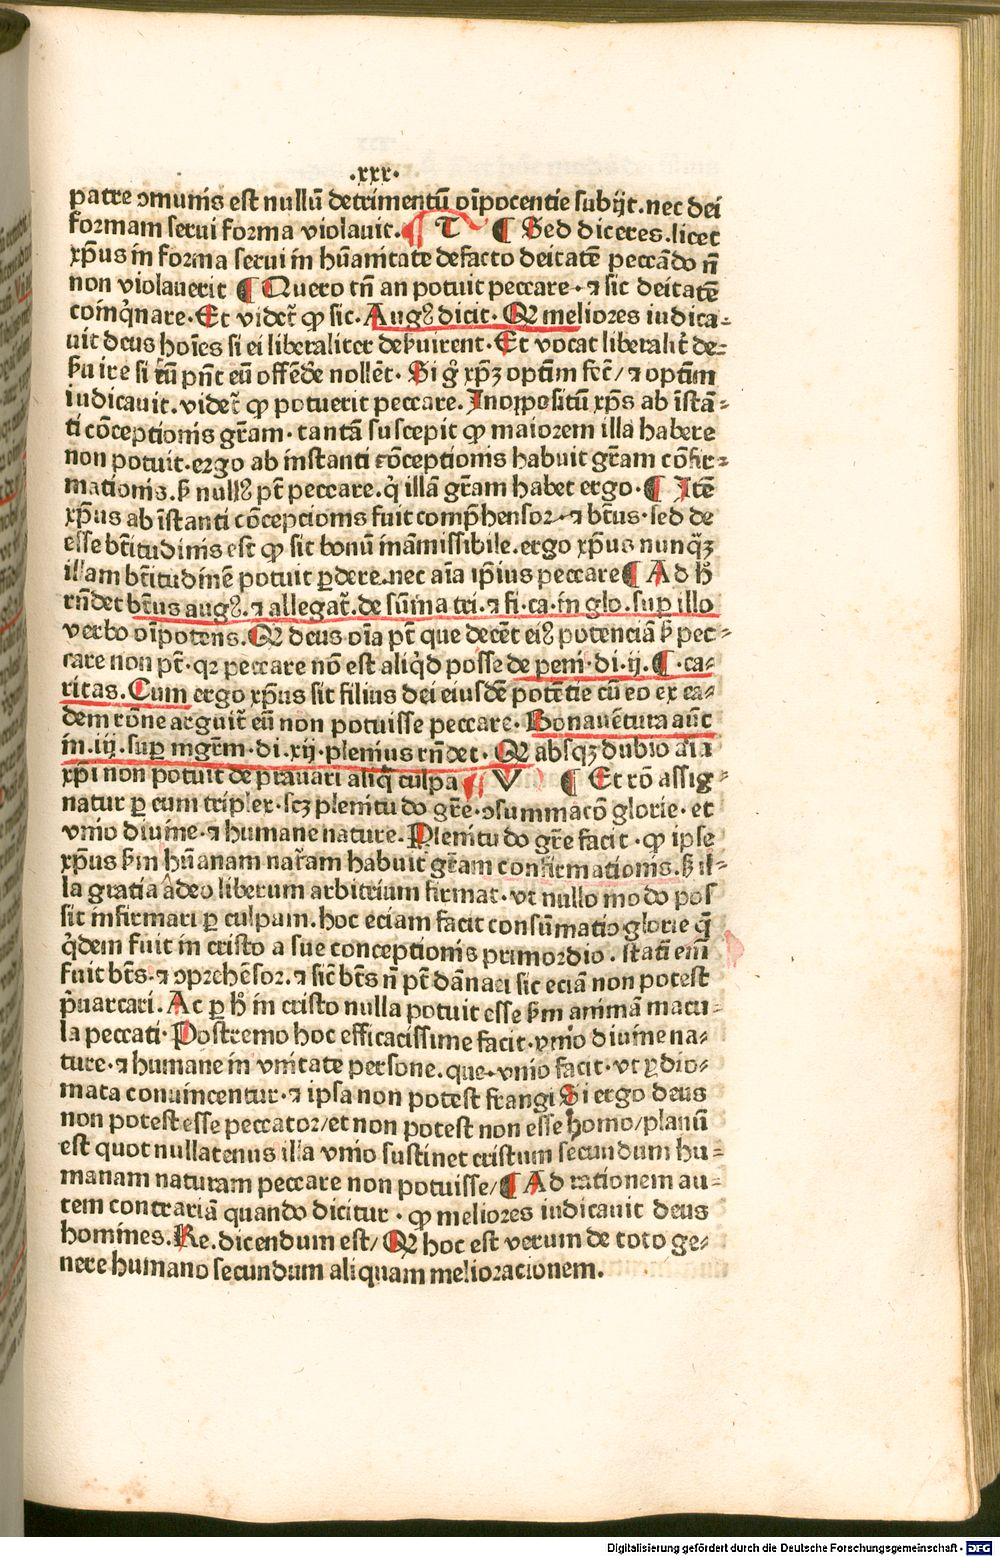 .xxx.
patre ↄmunis est nullū detrimentū oīpocentie subijt. nec dei
formam serui forma violauit. ¶ T ¶ Sed diceres. licet
xp̄us in forma serui in hūanitate defacto deitatē peccādo n̄
non violauerit ¶ Quero tn̄ an potuit peccare. ⁊ sic deitatē
coinq̇nare. Et videt̄ ꝙ sic. Augꝰ dicit. Qꝛ meliores iudica⸗
uit deus hoīes si ei liberaliter deẜuirent. Et vocat liberalit̄ de⸗
ẜuire si tū pn̄t eū offēde nollēt. Si gͦ xp̄ꝫ optīm fec̄t / ⁊ optīm
iudicauit. videt̄ ꝙ potuerit peccare. Inoppositū xp̄s ab īstā⸗
ti cōceptionis gr̄am. tantā suscepit ꝙ maiorem illa habere
non potuit. ergo ab instanti cōceptionis habuit gr̄am cōfir⸗
mationis. ẜ nullꝰ pt̄ peccare. q̇ illā gr̄am habet ergo. ¶ Itē
xp̄us ab īstanti cōceptionis fuit comp̄hensor. ⁊ bt̄us. sed de
esse bt̄itudinis est ꝙ sit bonū ināmissibile. ergo xp̄us nunq̄ꝫ
illam bt̄itudinē potuit ꝑdere. nec aīa ip̄ius peccare ¶ Ad hͦ
rn̄det bt̄us augꝰ. ⁊ allegat̄. de sūma tri. ⁊ fi. ca. in glo. suꝑ illo
verbo oīpotens. Qꝛ deus oīa pt̄ que decēt eiꝰ potenciā ẜ pec⸗
care non pt̄. qꝛ peccare nō est aliq̇d posse de pem. di. ij. ¶. ca⸗
ritas. Cum ergo xp̄us sit filius dei eiusdē potētie cū eo ex ea⸗
dem rōne arguit̄ eū non potuisse peccare. Bonauētura aūt
in. iij. suꝑ mgr̄m. di. xij. plenius rn̄det. Qꝛ absqꝫ dubio aīa
xp̄i non potuit deprauari aliq̄ culpa ¶ V ¶ Et rō assig⸗
natur ꝑ cum tripler. scꝫ plenitudo gr̄e. ↄsummacō glorie. et
vnio diuine. ⁊ humane nature. Plenitudo gr̄e facit. ꝙ ipse
xp̄us ẜm hūanam nat̄am habuit gr̄am confirmationis. ẜ il⸗
la gratia adeo liberum arbitrium firmat. vt nullo modo pos
sit infirmari ꝑ culpam. hoc eciam facit consūmatio glorie q̄
q̇dem fuit in cristo a sue conceptionis primordio. statī em̄
fuit bt̄s. ⁊ ↄprehēsor. ⁊ sic̄ bt̄s n̄ pt̄ dānari sic eciā non potest
p̄uaricari. Ac ꝑ hͦ in cristo nulla potuit esse ẜm animā macu⸗
la peccati. Postremo hoc efficacissime facit. vnio diuine na⸗
ture. ⁊ humane in vnitate persone. que. vnio facit. vt ꝑ dio⸗
mata conuincentur. ⁊ ipsa non potest frangi Si ergo deus
non potest esse peccator / et non potest non esse homo / planū
est quot nullatenus illa vnio sustinet cristum secundum hu⸗
manam naturam peccare non potuisse / ¶ Ad rationem au⸗
tem contrariā quando dicitur. ꝙ meliores iudicauit deus
homines. Re. dicendum est / Qꝛ hoc est verum de toto ge⸗
nere humano secundum aliquam melioracionem.
Digitalisierung gefördert durch die Deutsche Forschungsgemeinschaft - DFG